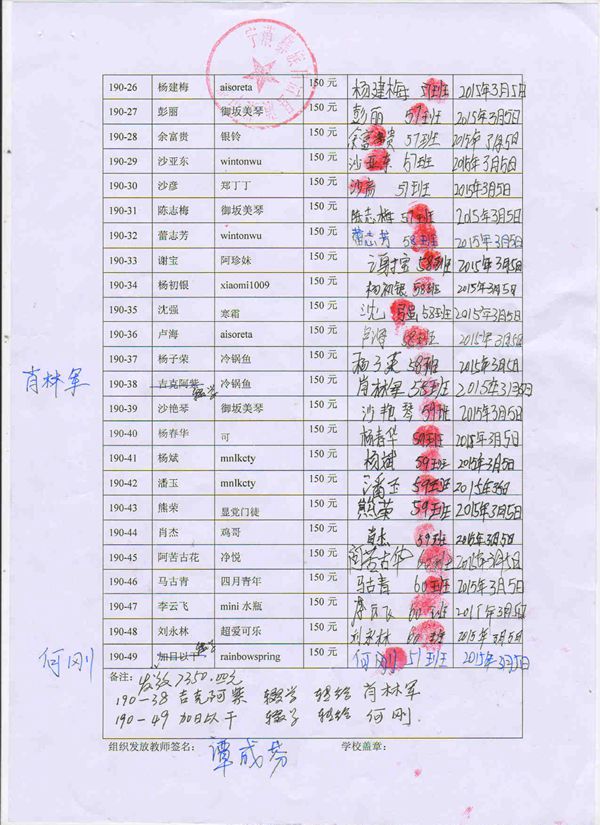 190-26 杨建梅 aisoreta 150 元 杨建梅 57班 2015年3月5日
190-27 彭丽 御坂美琴 150 元 彭丽 57班 2015年3月5日
190-28 余富贵 银铃 150 元 余富贵 57班 2015年3月5日
190-29 沙亚东 wintonwu 150 元 沙亚东 57班 2015年3月5日
190-30 沙彦 郑丁丁 150 元 沙彦 57班 2015年3月5日
190-31 陈志梅 御坂美琴 150 元 陈志梅 57班 2015年3月5日
190-32 蕾志芳 wintonwu 150 元 蕾志芳 58班 2015年3月5日
190-33 谢宝 阿珍妹 150 元 谢宝 58班 2015年3月5日
190-34 杨初银 xiaomi1009 150 元 杨初银 58班 2015年3月5日
190-35 沈强 寒霜 150 元 沈强 58班 2015年3月5日
190-36 卢海 aisoreta 150 元 卢海 58班 2015年3月5日
190-37 杨子荣 冷锅鱼 150 元 杨子荣 58班 2015年3月5日
肖林军 190-38 吉克阿 辍学 冷锅鱼 150 元 肖林军 58班 2015年3月5日
190-39 沙艳琴 御坂美琴 150 元 沙艳琴 59班 2015年3月5日
190-40 杨春华 可 150 元 杨春华 59班 2015年3月5日
190-41 杨斌 mnlkcty 150 元 杨斌 59班 2015年3月5日
190-42 潘玉 mnlkcty 150 元 潘玉 59班 2015年3月5日
190-43 熊荣 显党门徒 150 元 熊荣 59班 2015年3月5日
190-44 肖杰 鸡哥 150 元 肖杰 59班 2015年3月5日
190-45 阿苦古花 净悦 150 元 阿苦古华 60班 2015年3月5日
190-46 马古青 四月青年 150 元 马古青 60班 2015年3月5日
190-47 李云飞 mini 水瓶 150 元 60班 2015年3月5日
190-48 刘永林 超爱可乐 150 元 刘永林 60班 2015年3月5日
何刚 190-49 加日以干 辍学 rainbowspring 150 元 何刚 57班 2015年3月5日
备注: 发放7350.00元
190-38 吉克阿 辍学 转给 肖林军
190-49 加日以干 辍学 转给 何刚.
组织发放教师签名: 谭成芬 学校盖章: